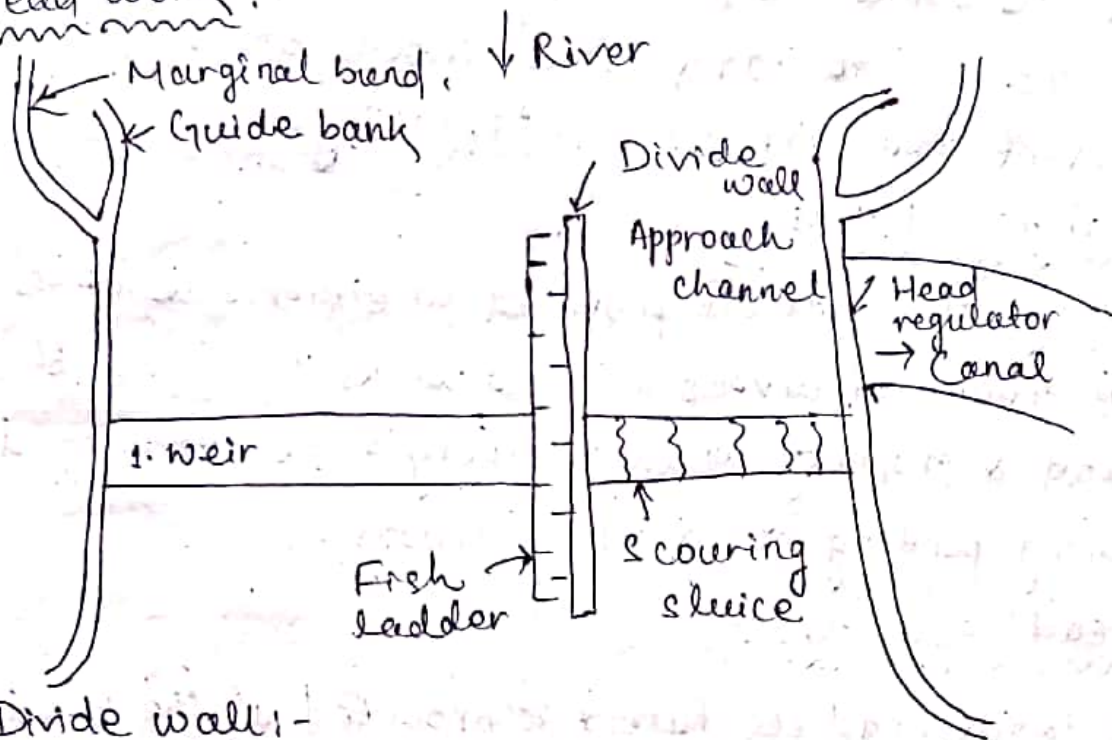 Marginal bund.
↓ River
Guide bank
Divide
wall
Approach
channel
Head
regulator
→ Canal
1. Weir
Fish
ladder
Scouring
sluice
Divide wall:-